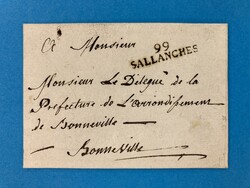 A Monsieur
99
SALLANCHES
Monsieur Le Délégué de la
Prefecture de L'arrondissement
de Bonneville
Bonneville